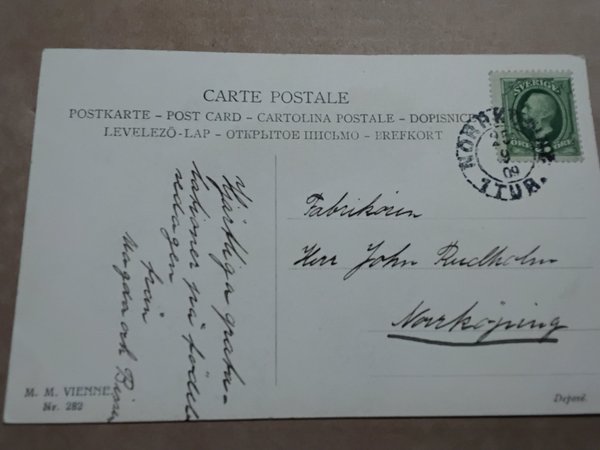 CARTE POSTALE
POSTKARTE – POST CARD – CARTOLINA POSTALE – DOPISNICE
LEVELEZÖ-LAP – ОТКРЫТОЕ ПИСЬМО – BREFKORT
SVERIGE
NORRKÖPING
09
1 TUR.
Hjärtliga gratu-
lationer på födel
sedagen
från
Magda och
Fabrikören
Herr John Rudholm
Norrköping
M. M. VIENNE.
Nr. 282
Deposé.